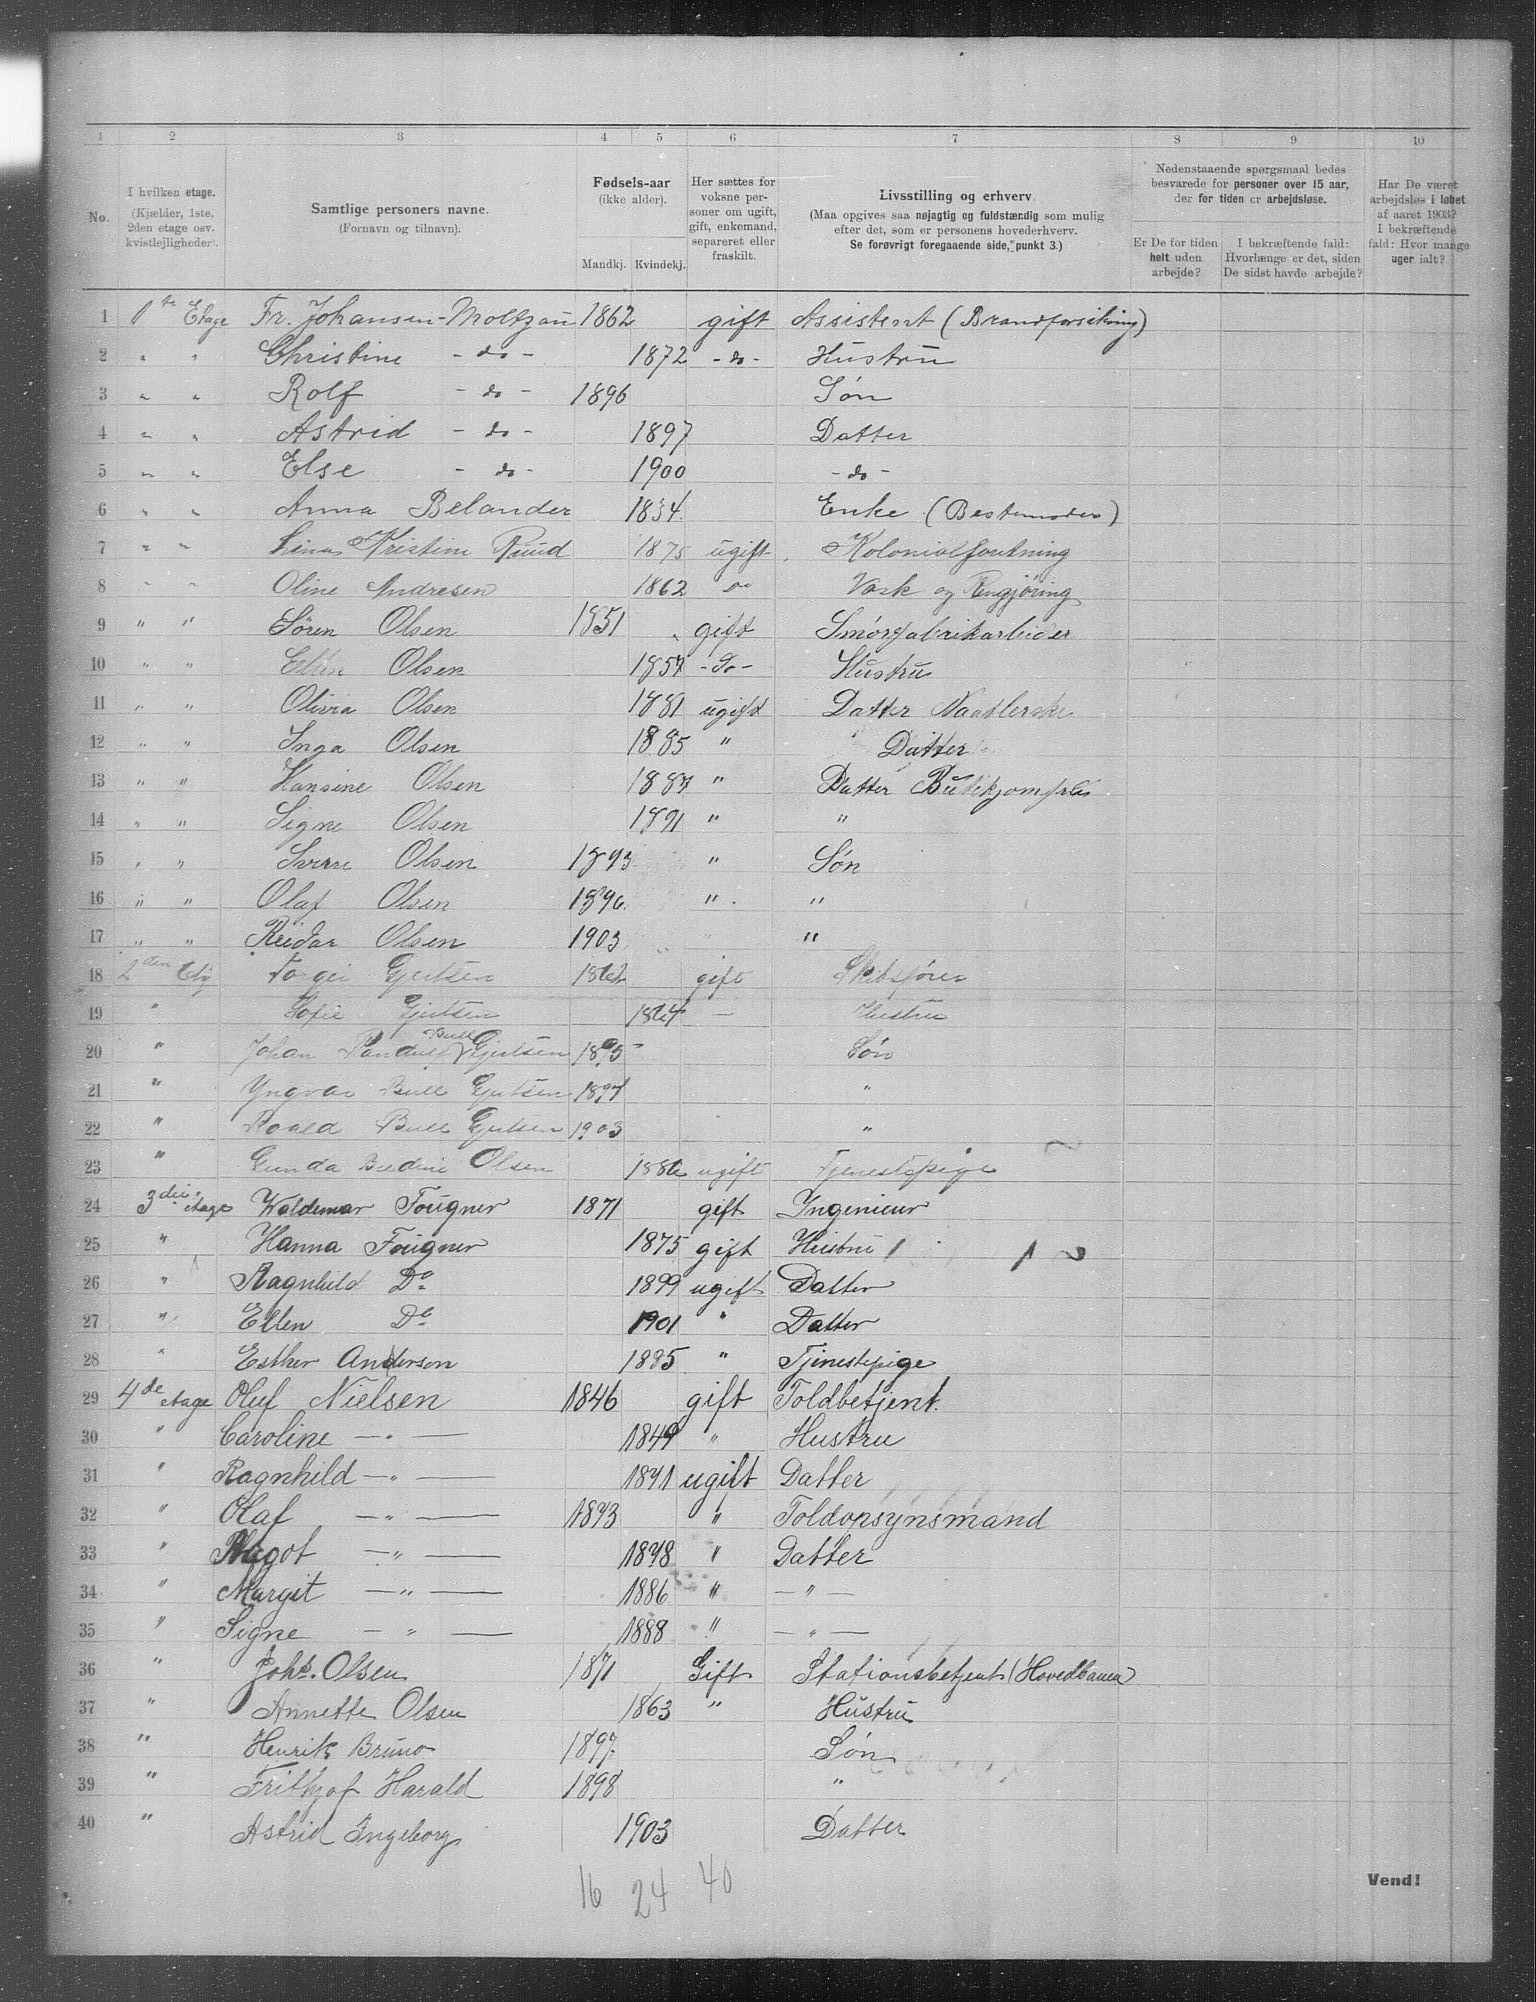 1 2 3 4 5 6 7 8 9 10
No.
I hvilken etage.
(Kjælder, 1ste,
2den etage osv.
kvistlejligheder).
Samtlige personers navne.
(Fornavn og tilnavn).
Fødsels-aar
(ikke alder).
Mandkj. Kvindekj.
Her sættes for
voksne per-
soner om ugift,
gift, enkemand,
separeret eller
fraskilt.
Livsstilling og erhverv.
(Maa opgives saa nøjagtig og fuldstændig som mulig
efter det, som er personens hovederhverv.
Se forøvrigt foregaaende side, punkt 3.)
Nedenstaaende spørgsmaal bedes
besvarede for personer over 15 aar,
der for tiden er arbejdsløse.
Er De for tiden
helt uden
arbejde?
I bekræftende fald:
Hvorlænge er det, siden
De sidst havde arbejde?
Har De været
arbejdsløs i løbet
af aaret 1903?
I bekræftende
fald: Hvor mange
uger ialt?
1 1ste Etage Fr. Johansen-Moltzau 1862 gift Assistent (Brandforsikring)
2 " " Christine -do- 1872 -do- Hustru
3 " " Rolf -do- 1896 Søn
4 " " Astrid -do- 1897 Datter
5 " " Else -do- 1900 -do-
6 " " Anna Belander 1834 Enke (Bestemoder)
7 " " Kristine Ruud 1875 ugift Kolonialforretning
8 " " Oline Andresen 1862 do Vask og Rengjøring
9 " " Søren Olsen 1851 gift Smørfabrikarbeider
10 " " Ellen Olsen 1857 -do- Hustru
11 " " Olivia Olsen 1881 ugift Datter
12 " " Inga Olsen 1885 " Datter
13 " " Hansine Olsen 1887 " Datter Butikjomfru
14 " " Signe Olsen 1891 " "
15 " " Sverre Olsen 1893 " Søn
16 " " Olaf Olsen 1896 " "
17 " " Reidar Olsen 1903 "
18 2den Etg Gjertsen 1862 gift Skibsfører
19 " Sofie Gjertsen 1864 — Hustru
20 " Johan Randulf Bull Gjertsen 1895 Søn
21 " Yngvar Bull Gjertsen 1897 "
22 " Roald Bull Gjertsen 1903 "
23 " Gunda Olsen 1886 ugift Tjenestepige
24 3die etage Waldemar Fougner 1871 gift Ingenieur
25 " Hanna Fougner 1875 gift Hustru
26 " Ragnhild Do 1899 ugift Datter
27 " Ellen Do 1901 " Datter
28 " Esther Anderson 1885 " Tjenestepige
29 4de etage Oluf Nielsen 1846 gift Toldbetjent.
30 " Caroline —"— 1849 " Hustru
31 " Ragnhild —"— 1871 ugift Datter
32 " Olaf —"— 1873 " Toldopsynsmand
33 " Dagot —"— 1878 " Datter
34 " Margit —"— 1886 " —"—
35 " Signe —"— 1888 " —"—
36 " Johs. Olsen 1871 Gift Stationsbetjent (Hovedbanen
37 " Annette Olsen 1863 " Hustru
38 " Henrik Bruno 1897 Søn
39 " Frithjof Harald 1898 "
40 " Astrid Ingeborg 1903 Datter
16 24 40
Vend!